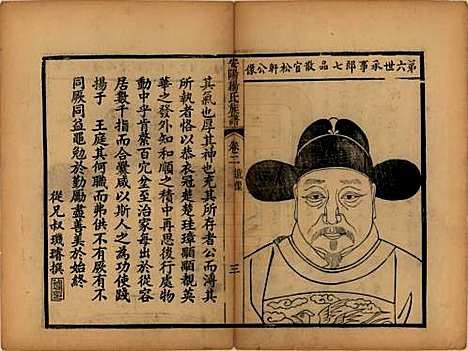 第六世承事郎七品散官松軒公像
安陽楊氏族譜
卷二
遺像
三
其氣也厚其神也充其所存者公而溥其
所執者恪以恭衣冠楚楚珪璋顒顒英
華之發外知和順之積中再思後行處物
動中乎肯綮百冗坌至治家每出於從容
居數千指而合爨咸以斯人之為功使踐
揚于 王庭其何職而弗供不有厥有不
同厥同益黽勉於勤勵盡善美於始終
從兄叔璣璿撰